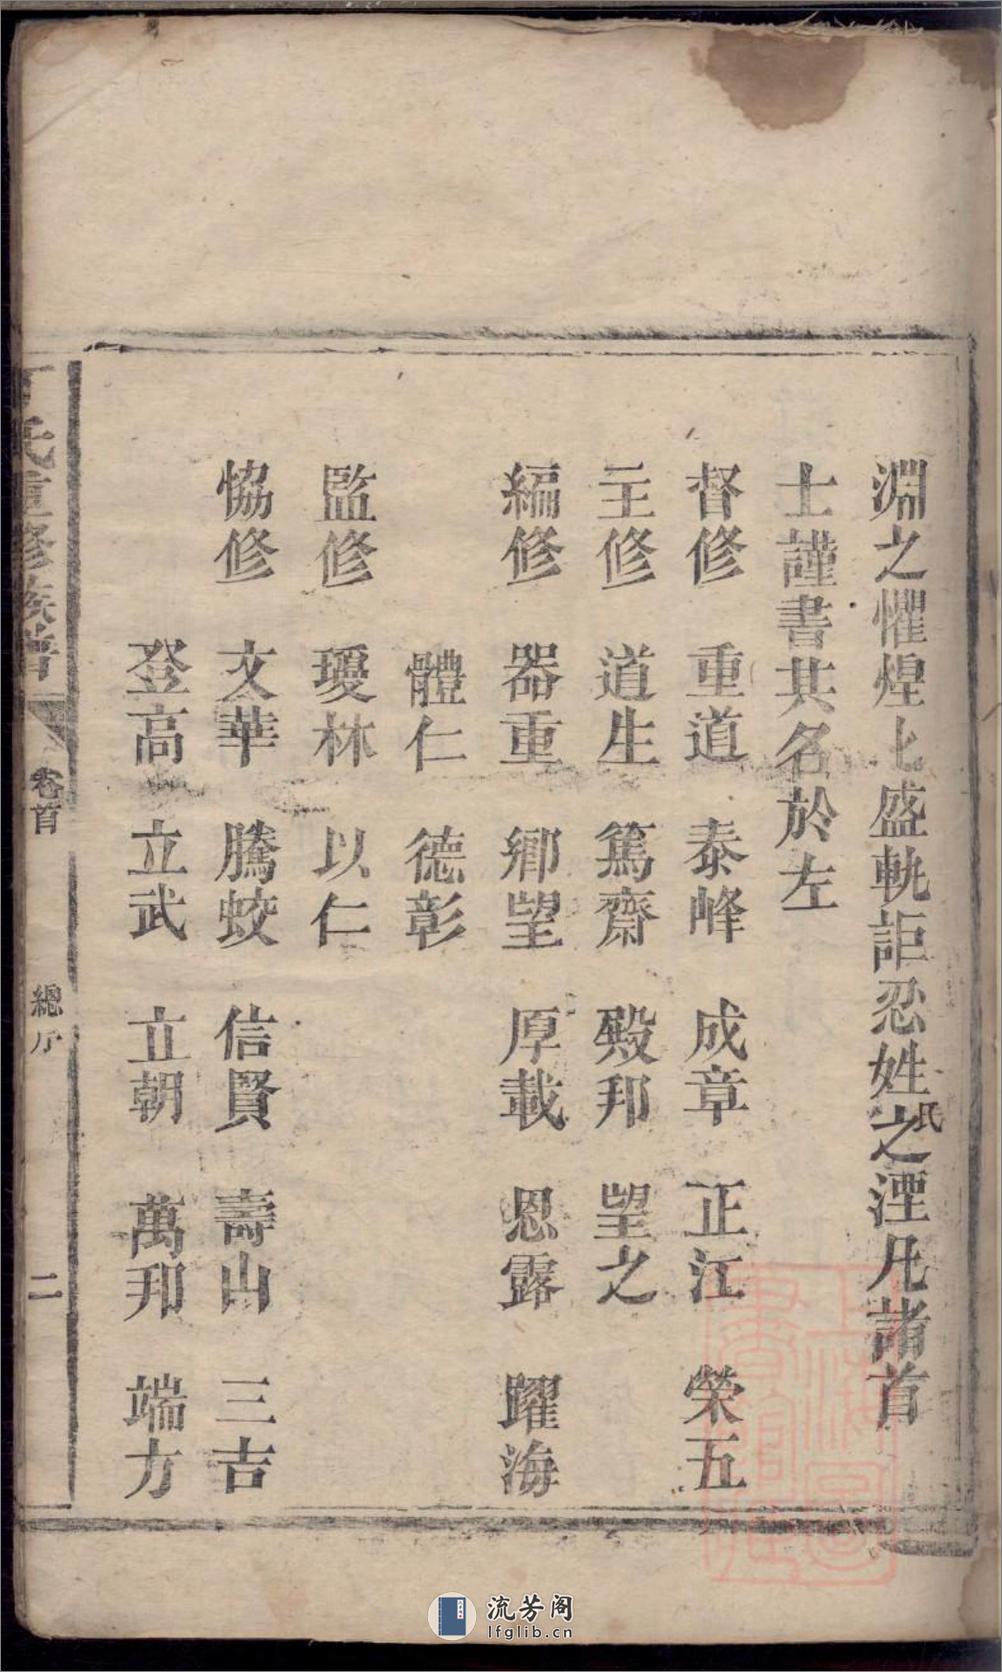 淵之懼煌上盛軌詎忍姓氏之湮凡諸首
士謹書其名於左
督修 重道 泰峰 成章 正江 榮五
主修 道生 篤齋 殿邦 望之
編修 器重 鄉望 厚載 恩露 躍海
體仁 德彰
監修 瓊林 以仁
恊修 文華 騰蛟 信賢 壽山 三吉
登高 立武 立朝 萬邦 端方
氏重修族譜 卷首 總序 二
流芳阁
lfglib.cn